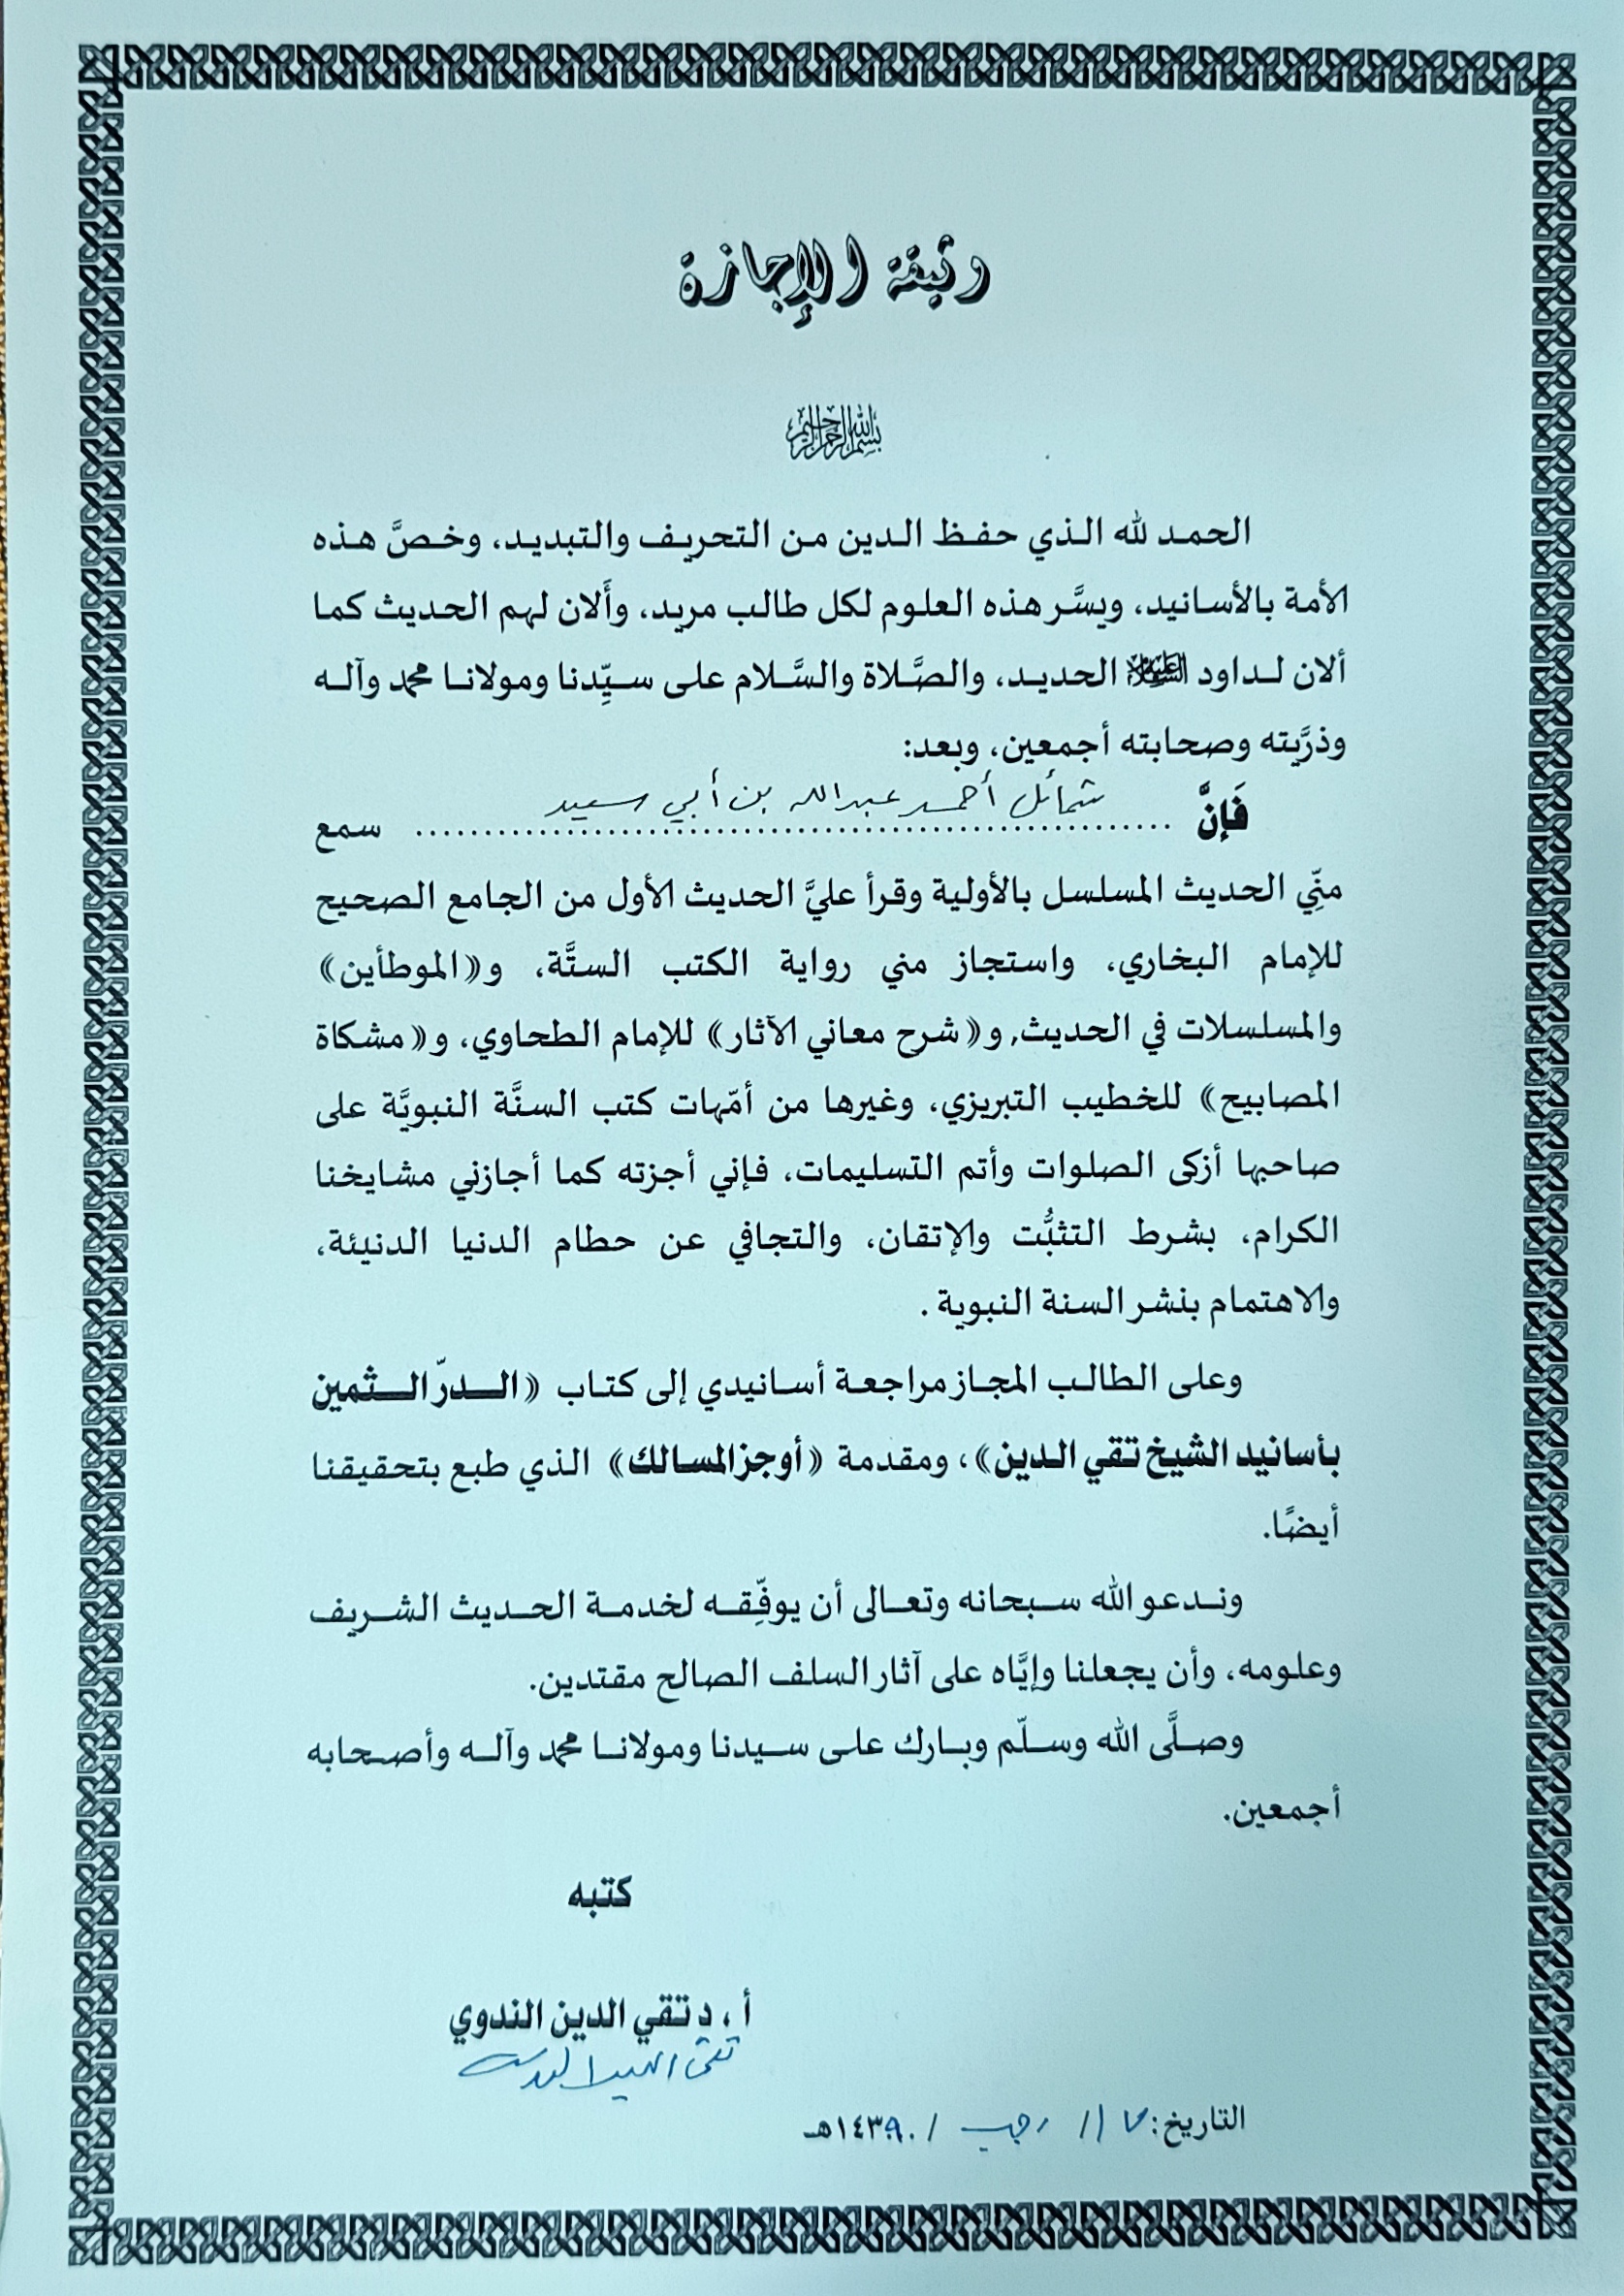 وثيقة الإجازة
بسم الله الرحمن الرحيم
الحمد لله الذي حفظ الدين من التحريف والتبديد، وخصَّ هذه
الأمة بالأسانيد، ويسَّر هذه العلوم لكل طالب مريد، وأَلان لهم الحديث كما
ألان لداود عليه السلام الحديد، والصَّلاة والسَّلام على سيِّدنا ومولانا محمد وآله
وذرَّيته وصحابته أجمعين، وبعد:
فَإنَّ شمائل أحمد عبدالله بن أبي سعيد سمع
منّي الحديث المسلسل بالأولية وقرأ عليَّ الحديث الأول من الجامع الصحيح
للإمام البخاري، واستجاز مني رواية الكتب الستَّة، و«الموطأين»
والمسلسلات في الحديث, و«شرح معاني الآثار» للإمام الطحاوي، و«مشكاة
المصابيح» للخطيب التبريزي، وغيرها من أمّهات كتب السنَّة النبويَّة على
صاحبها أزكى الصلوات وأتم التسليمات، فإني أجزته كما أجازني مشايخنا
الكرام، بشرط التثبُّت والإتقان، والتجافي عن حطام الدنيا الدنيئة،
والاهتمام بنشر السنة النبوية .
وعلى الطالب المجاز مراجعة أسانيدي إلى كتاب «الدرّ الثمين
بأسانيد الشيخ تقي الدين»، ومقدمة «أوجز المسالك» الذي طبع بتحقيقنا
أيضًا.
وندعو الله سبحانه وتعالى أن يوفِّقه لخدمة الحديث الشريف
وعلومه، وأن يجعلنا وإيَّاه على آثار السلف الصالح مقتدين.
وصلَّى الله وسلّم وبارك على سيدنا ومولانا محمد وآله وأصحابه
أجمعين.
كتبه
أ ، د تقي الدين الندوي
تقي الدين الندوي
التاريخ: / رجب / ١٤٣٩هـ